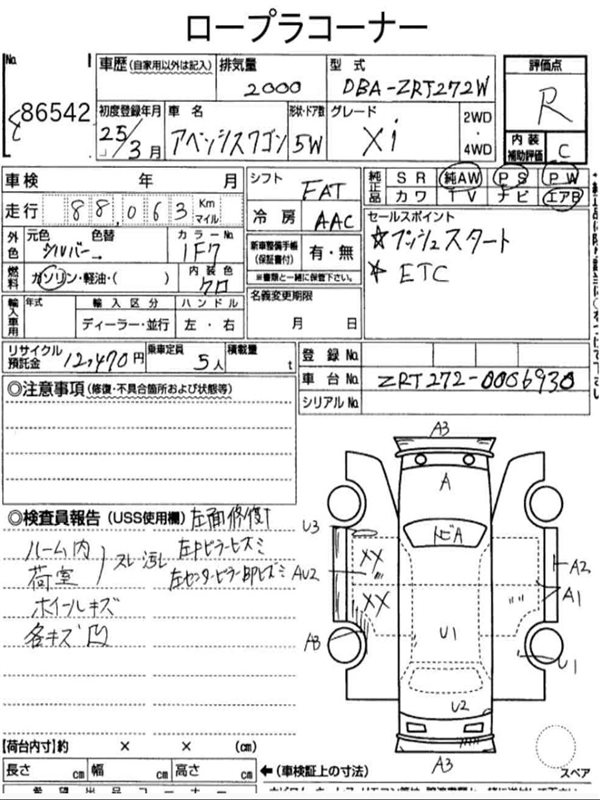 ロープラコーナー
No.
86542
車歴 (自家用以外は記入)
排気量
2000
型式
DBA-ZRT272W
評価点
R
初度登録年月
25/3月
車名
アベンシスワゴン
形状・ドア数
5W
グレード
Xi
2WD
・
4WD
内装
補助評価
C
車検 年 月
シフト
FAT
純正品
SR 純AW PS PW
カワ TV ナビ エアB
走行 88,063 Km マイル
冷房
AAC
セールスポイント
☆プッシュスタート
☆ETC
外色
元色 色替
シルバー
カラーNo.
1F7
新車整備手帳
(保証書付)
有・無
※書類と一緒に保管下さい。
燃料
ガソリン・軽油・( )
内装色
クロ
名義変更期限
月 日
輸入車用
年式
輸入区分
ハンドル
ディーラー・並行
左・右
リサイクル
預託金
12,470円
乗車定員
5人
積載量
t
登録No.
車台No.
ZRT272-0006930
シリアルNo.
◎注意事項 (修復・不具合箇所および状態等)
◎検査員報告 (USS使用欄) 左面修復
ルーム内
荷室
スレ汚レ
左Fピラーヒズミ
左センターピラー部ヒズミ
ホイールキズ
各キズ凹
A3
A
トビA
U3
XX
AU2
XX
A3
U1
A2
A1
U1
U2
A3
【荷台内寸】約 × × (cm)
長さ cm 幅 cm 高さ cm
←(車検証上の寸法)
スペア